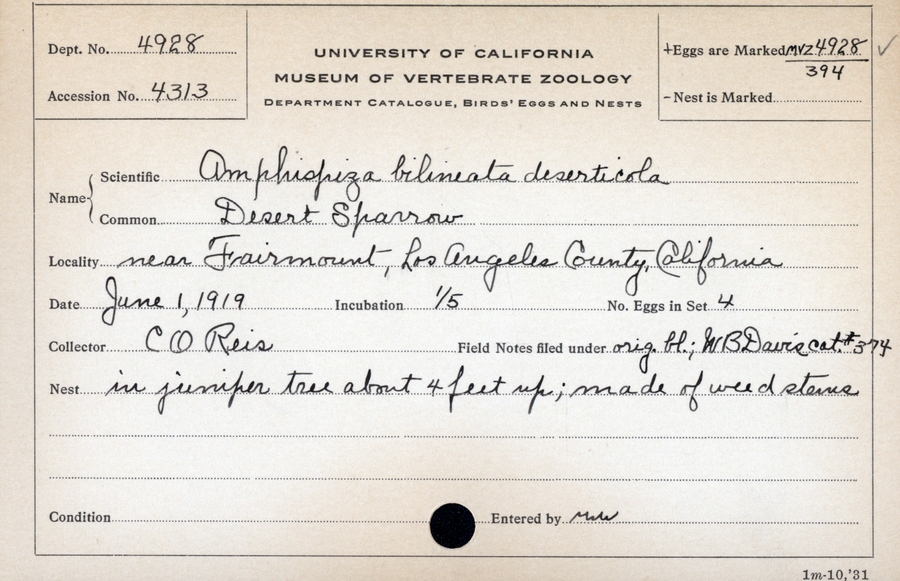 Dept. No. 4928
Accession No. 4313
UNIVERSITY OF CALIFORNIA
MUSEUM OF VERTEBRATE ZOOLOGY
DEPARTMENT CATALOGUE, BIRDS' EGGS AND NESTS
+Eggs are Marked MVZ 4928 ✓
394
-Nest is Marked
Name
Scientific Amphispiza bilineata deserticola
Common Desert Sparrow
Locality near Fairmount, Los Angeles County, California
Date June 1, 1919 Incubation 1/5 No. Eggs in Set 4
Collector C O Reis Field Notes filed under orig. bl.; WB Davis cat. #374
Nest in juniper tree about 4 feet up; made of weed stems
Condition Entered by
1m-10,'31